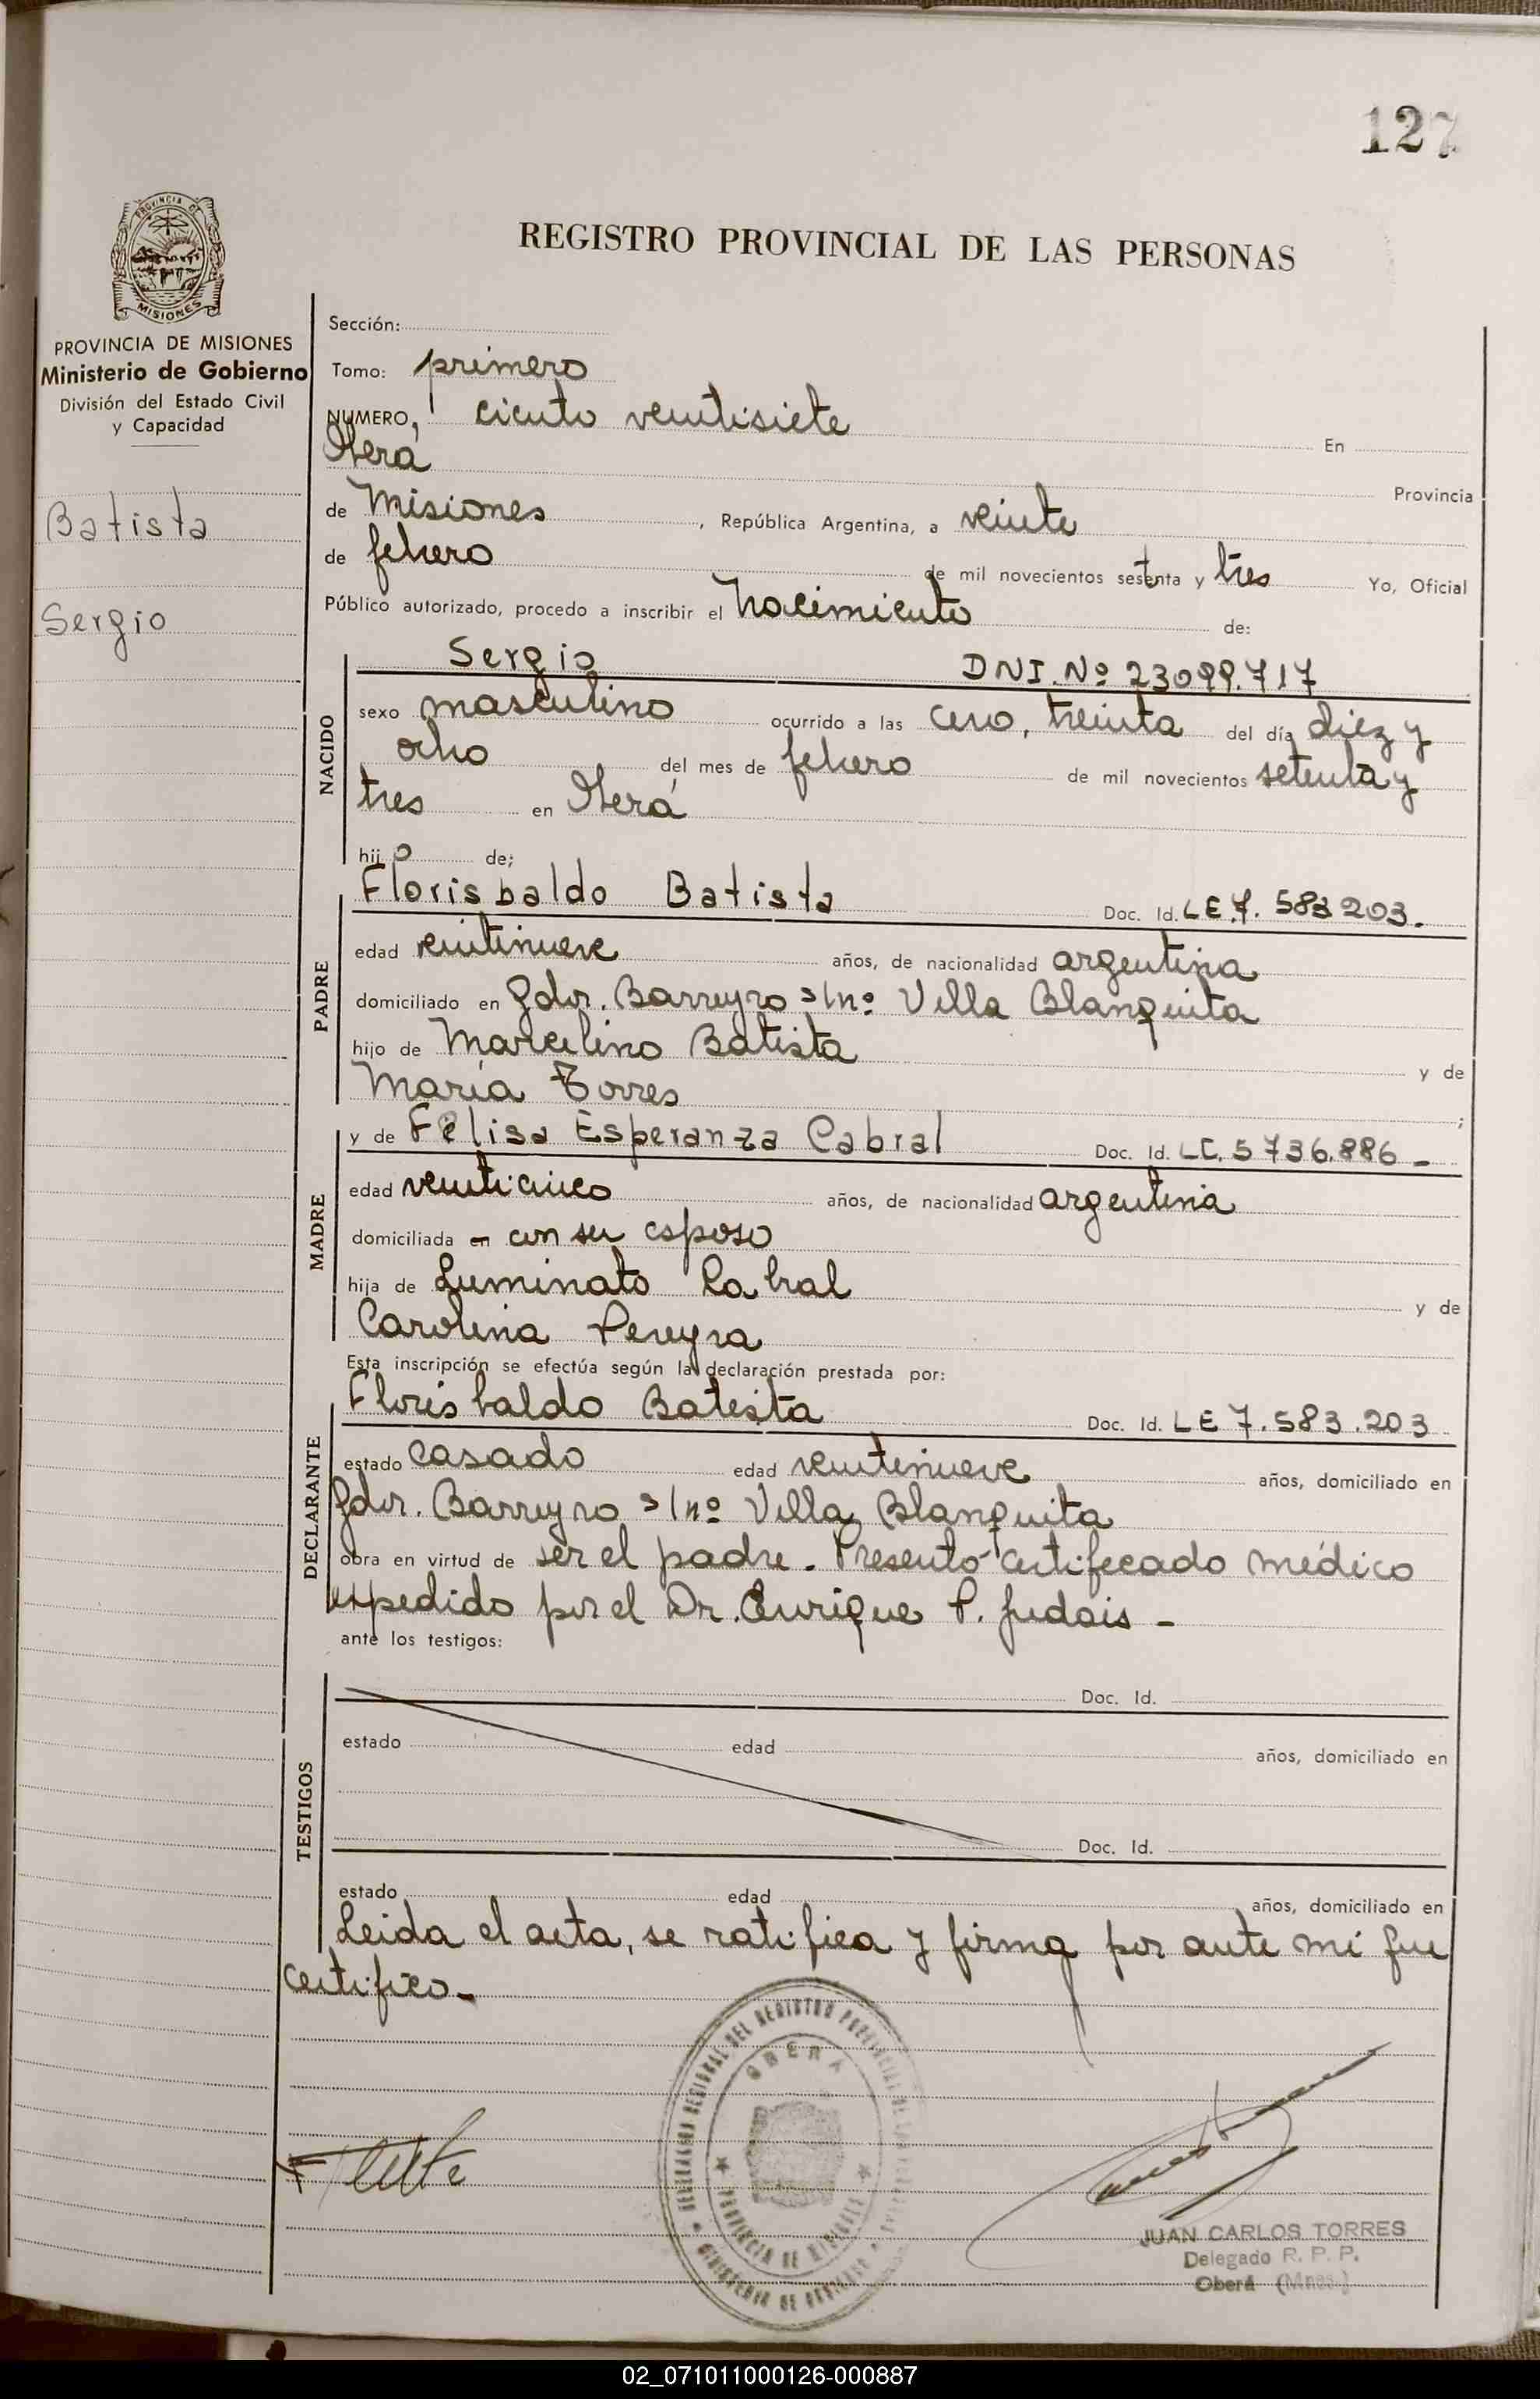 127
REGISTRO PROVINCIAL DE LAS PERSONAS
PROVINCIA DE MISIONES
MISIONES
PROVINCIA DE MISIONES
Ministerio de Gobierno
División del Estado Civil
y Capacidad
Batista
Sergio
Sección:
Tomo: primero
NUMERO, ciento veintisiete En
Oberá Provincia
de Misiones, República Argentina, a veinte
de febrero de mil novecientos setenta y tres Yo, Oficial
Público autorizado, procedo a inscribir el nacimiento de:
NACIDO
Sergio DNI. Nº 23099.717
sexo masculino ocurrido a las cero, treinta del día diez y
ocho del mes de febrero de mil novecientos setenta y
tres en Oberá
hijo de;
PADRE
Florisbaldo Batista Doc. Id. LE.7. 583203.
edad veintinueve años, de nacionalidad argentina
domiciliado en Gdor. Barreyro s/nº Villa Blanquita
hijo de Marcelino Batista y de
María Torres ;
MADRE
y de Felisa Esperanza Cabral Doc. Id. LC. 5736.886 -
edad veinticinco años, de nacionalidad argentina
domiciliada en con su esposo
hija de Luminato Cabral y de
Carolina Pereyra
Esta inscripción se efectúa según la declaración prestada por:
DECLARANTE
Florisbaldo Batista Doc. Id. LE 7.583.203
estado casado edad veintinueve años, domiciliado en
Gdor. Barreyro s/nº Villa Blanquita
obra en virtud de ser el padre. Presentó certificado médico
expedido por el Dr. Enrique P. Judais -
ante los testigos:
TESTIGOS
Doc. Id.
estado edad años, domiciliado en
Doc. Id.
estado edad años, domiciliado en
Leida el acta, se ratifica y firma por ante mi que
certifico.-
OBERA
PROVINCIA DE MISIONES
JUAN CARLOS TORRES
Delegado R. P. P.
Oberá (Mnes.)
02_071011000126-000887